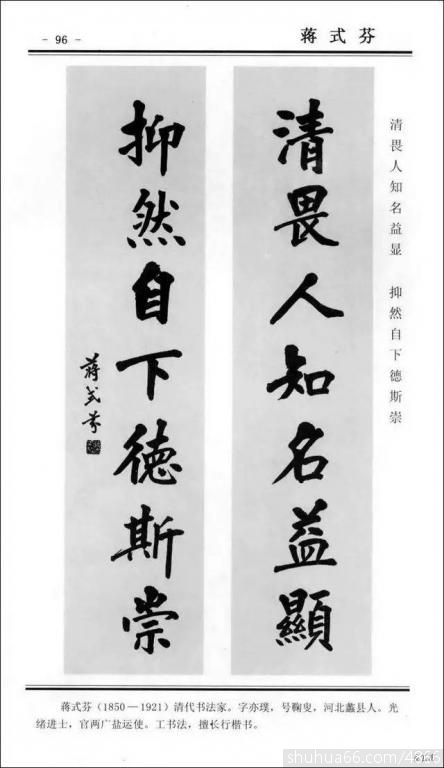 - 96 -
蒋式芬
清畏人知名益显 抑然自下德斯崇
清畏人知名益顯
抑然自下德斯崇
蒋式芬
蒋式芬(1850—1921)清代书法家。字亦璞,号鞠叟,河北蠡县人。光
绪进士,官两广盐运使。工书法,擅长行楷书。